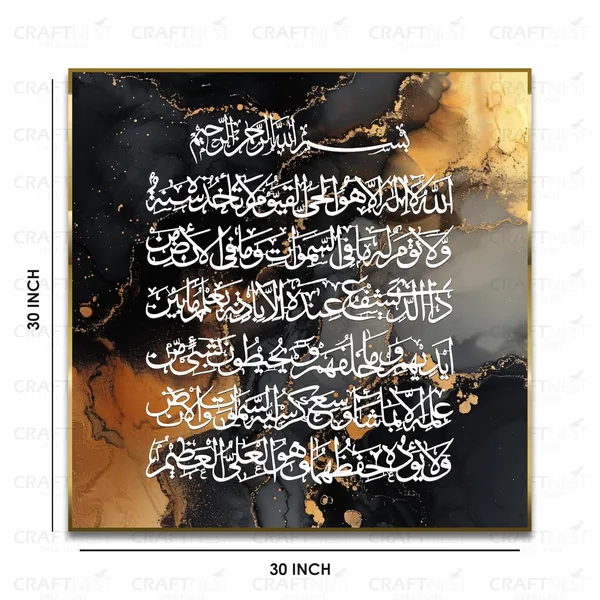 CRAFTNEST
بسم الله الرحمن الرحيم
الله لا اله الا هو الحي القيوم لا تأخذه سنة
ولا نوم له ما في السموات وما في الارض من
ذا الذي يشفع عنده الا باذنه يعلم ما بين
ايديهم وما خلفهم ولا يحيطون بشيء من
علمه الا بما شاء وسع كرسيه السموات والارض
ولا يؤده حفظهما وهو العلي العظيم
30 INCH
30 INCH